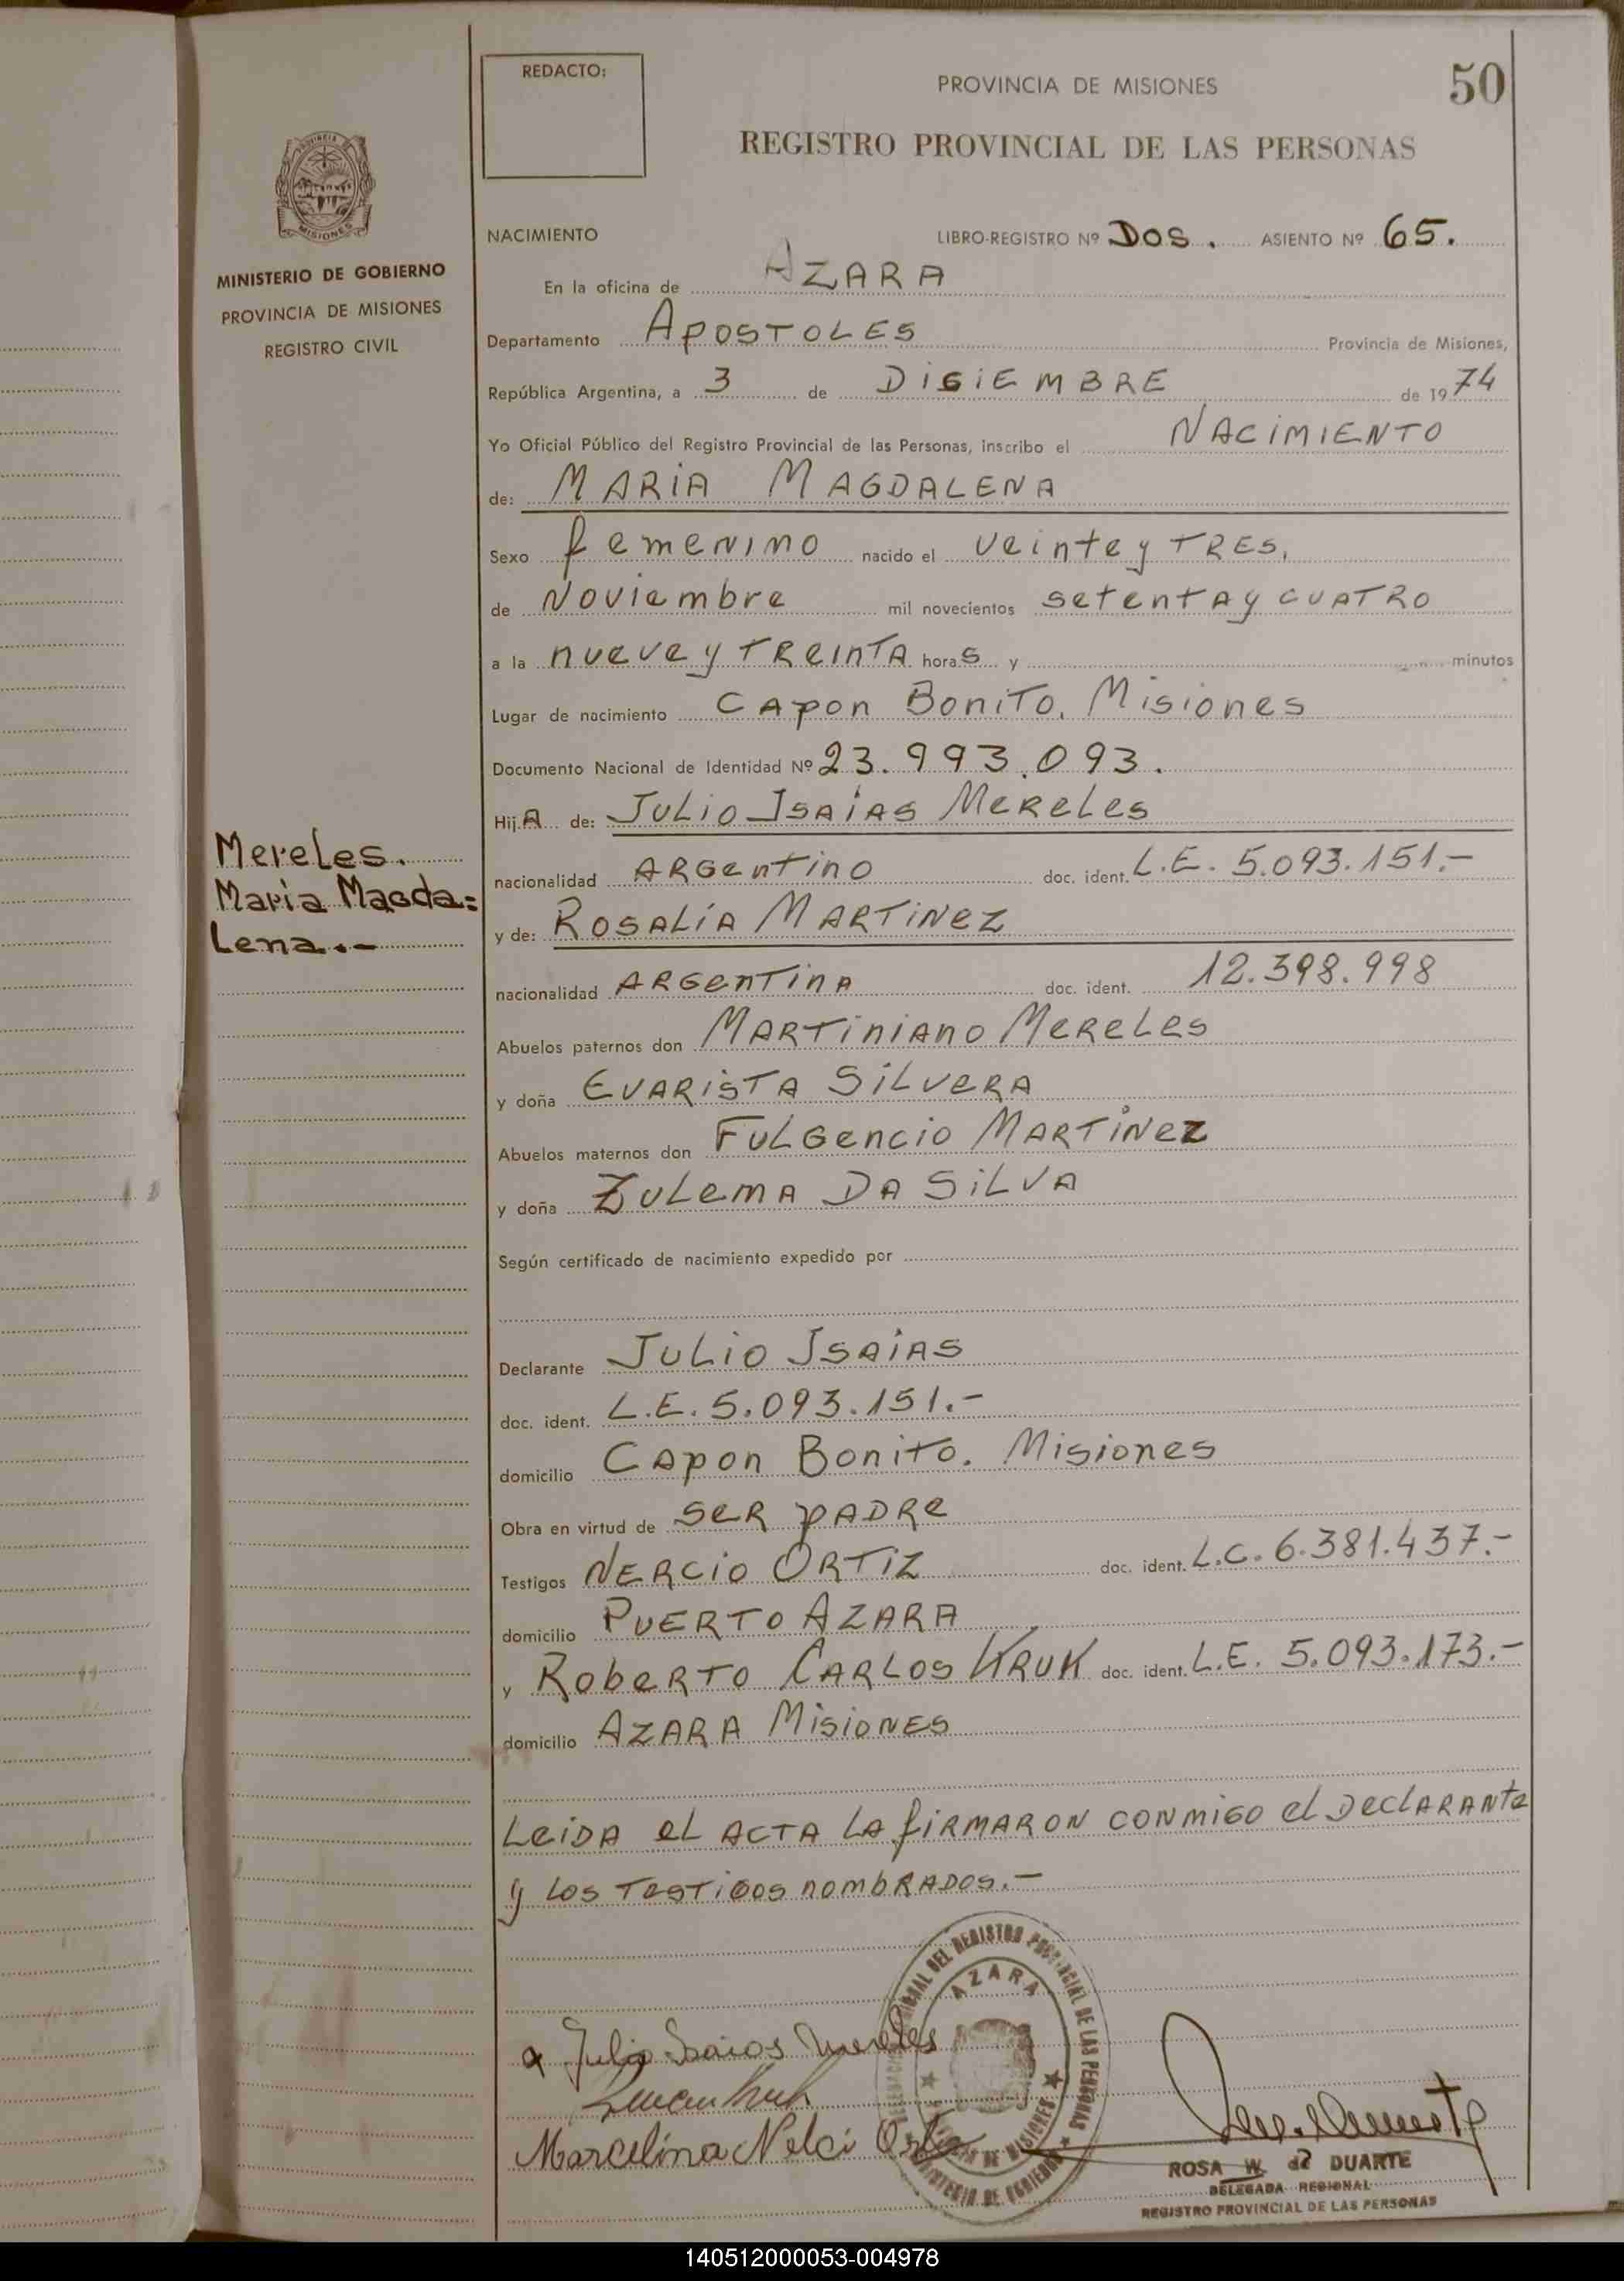 REDACTO:
PROVINCIA DE MISIONES
50
REGISTRO PROVINCIAL DE LAS PERSONAS
PROVINCIA DE
MISIONES
MINISTERIO DE GOBIERNO
PROVINCIA DE MISIONES
REGISTRO CIVIL
NACIMIENTO
LIBRO-REGISTRO Nº DOS. ASIENTO Nº 65.
En la oficina de AZARA
Departamento APOSTOLES Provincia de Misiones,
República Argentina, a 3 de DISIEMBRE de 1974
Yo Oficial Público del Registro Provincial de las Personas, inscribo el NACIMIENTO
de: MARIA MAGDALENA
Sexo femenino nacido el veinte y TRES,
de Noviembre mil novecientos setenta y CUATRO
a la nueve y TREINTA horas y minutos
Lugar de nacimiento CAPON BONITO. Misiones
Documento Nacional de Identidad Nº 23.993.093.
HijA de: JULIO ISAIAS MERELES
Mereles.
Maria Magda=
Lena.-
nacionalidad ARGENTINO doc. ident. L.E. 5.093.151.-
y de: ROSALIA MARTINEZ
nacionalidad ARGENTINA doc. ident. 12.398.998
Abuelos paternos don MARTINIANO MERELES
y doña EVARISTA SILVERA
Abuelos maternos don FULGENCIO MARTINEZ
y doña ZULEMA DA SILVA
Según certificado de nacimiento expedido por
Declarante JULIO ISAIAS
doc. ident. L.E. 5.093.151.-
domicilio CAPON BONITO. Misiones
Obra en virtud de SER PADRE
Testigos NERCIO ORTIZ doc. ident. L.C. 6.381.437.-
domicilio PUERTO AZARA
y ROBERTO CARLOS KRUK doc. ident. L.E. 5.093.173.-
domicilio AZARA MISIONES
LEIDA EL ACTA LA FIRMARON CONMIGO el DECLARANTE
y LOS TESTIGOS NOMBRADOS.-
DEL REGISTRO PROVINCIAL DE LAS PERSONAS
AZARA
DE MISIONES
MINISTERIO DE GOBIERNO
Julio Isaias Mereles
Marcelina Nelci
ROSA W. de DUARTE
DELEGADA REGIONAL
REGISTRO PROVINCIAL DE LAS PERSONAS
140512000053-004978